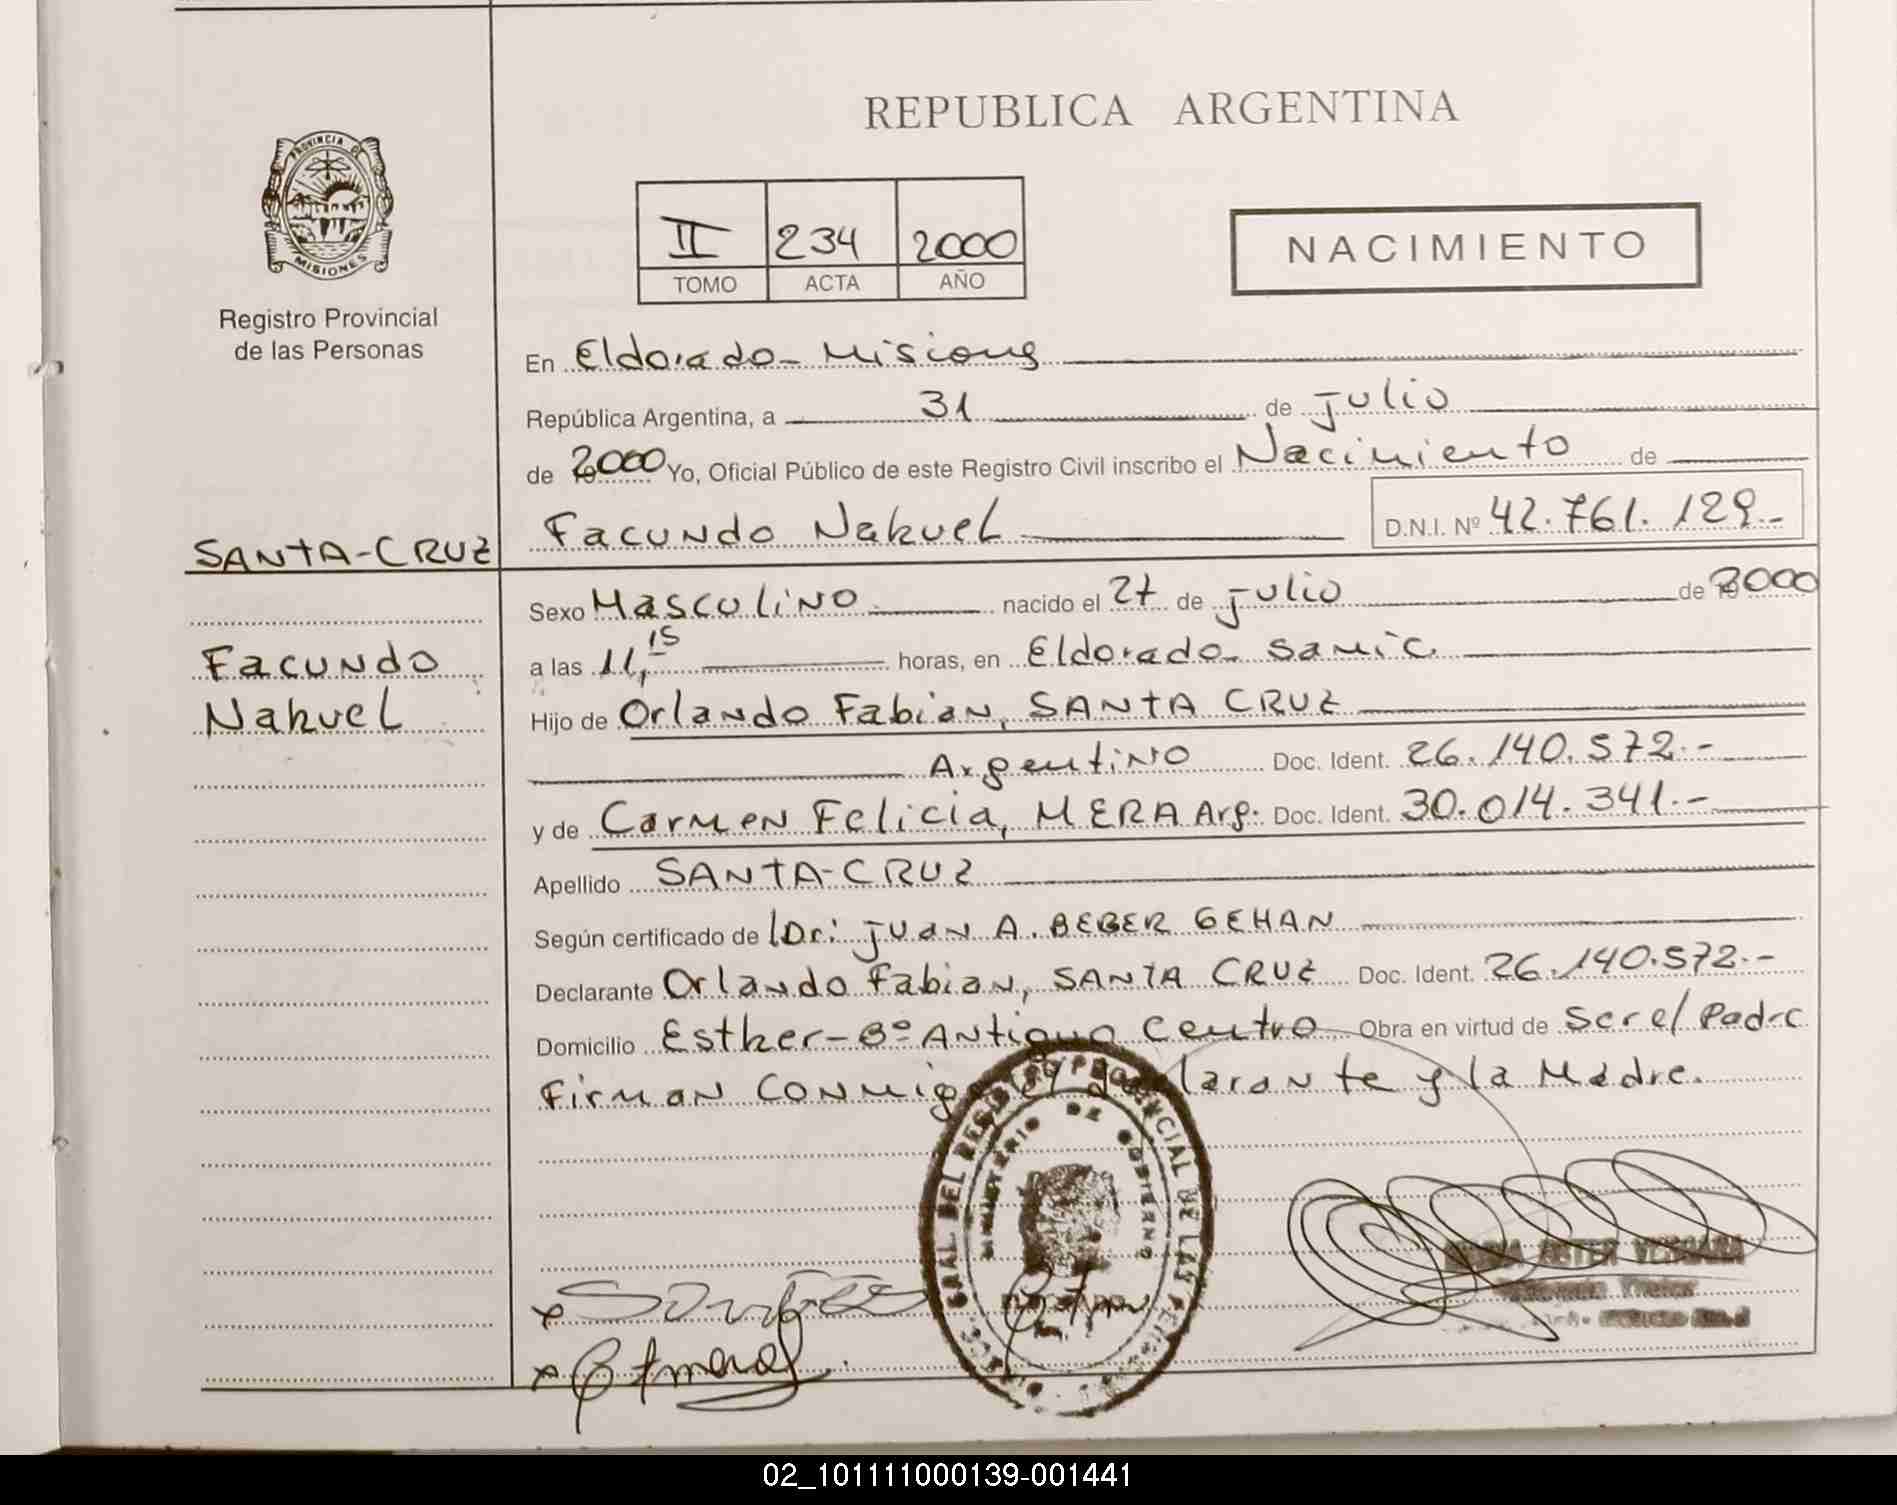 REPUBLICA ARGENTINA
PROVINCIA DE
MISIONES
Registro Provincial
de las Personas
II 234 2000
TOMO ACTA AÑO
NACIMIENTO
En Eldorado - Misiones
República Argentina, a 31 de julio
de 2000 Yo, Oficial Público de este Registro Civil inscribo el Nacimiento de
Facundo Nahuel D.N.I. Nº 42.761.129.-
SANTA-CRUZ
Facundo
Nahuel
Sexo Masculino nacido el 27 de julio de 2000
a las 11,15 horas, en Eldorado - Samic.
Hijo de Orlando Fabian, SANTA CRUZ
Argentino Doc. Ident. 26.140.572.-
y de Carmen Felicia, MERA Arg. Doc. Ident. 30.014.341.-
Apellido SANTA-CRUZ
Según certificado de Dr: Juan A. BEBER GEHAN
Declarante Orlando Fabian, SANTA CRUZ Doc. Ident. 26.140.572.-
Domicilio Esther - Bº Antiguo Centro Obra en virtud de Ser el Padre
Firman conmigo el declarante y la Madre.
GRAL. DEL REGISTRO PROVINCIAL DE LAS
MINISTERIO DE GOBIERNO
VERGARA
02_101111000139-001441